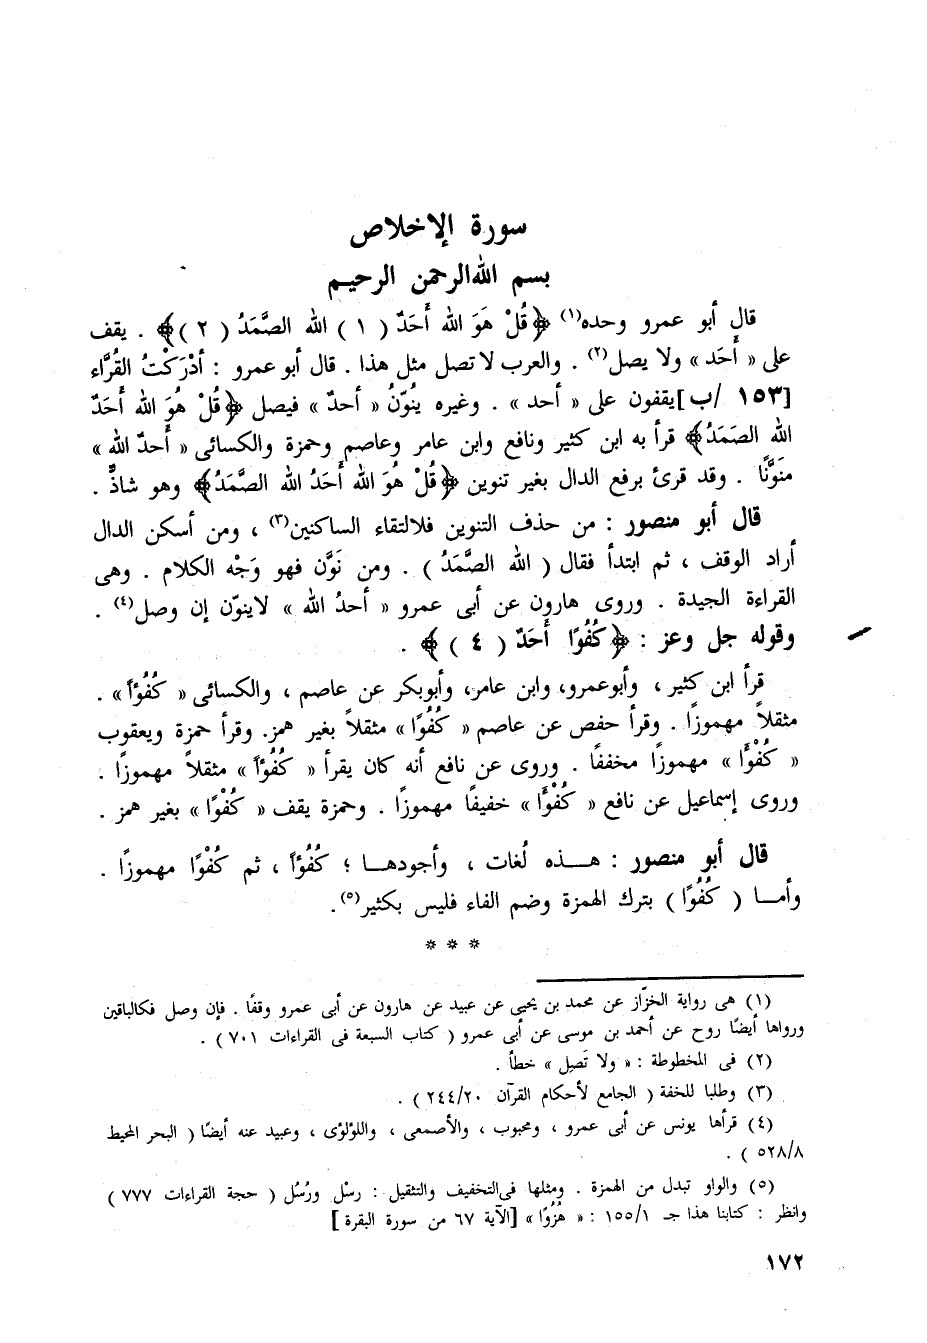 سورة الإخلاص
بسم الله الرحمن الرحيم
قال أبو عمرو وحده(١) ﴿قُلْ هَوَ الله أَحَدٌ ( ١ ) الله الصَّمَدُ ( ٢ )﴾ . يقف
على « أَحَد » ولا يصل(٢) . والعرب لا تصل مثل هذا . قال أبو عمرو : أدْرَكْتُ القُرَّاء
[١٥٣ /ب] يقفون على « أحد » . وغيره يُنوّنُ « أحدٌ » فيصل ﴿قُلْ هُوَ الله أَحَدٌ
الله الصَمَدُ﴾ قرأ به ابن كثير ونافع وابن عامر وعاصم وحمزة والكسائى « أَحدٌ الله »
منَوَّنًا . وقد قرئ برفع الدال بغير تنوين ﴿قُلْ هُوَ الله أَحَدُ الله الصَّمَدُ﴾ وهو شاذٌّ .
قال أبو منصور : من حذف التنوين فلالتقاء الساكنين(٣) ، ومن أسكن الدال
أراد الوقف ، ثم ابتدأ فقال ( الله الصَّمَدُ ) . ومن نَوَّن فهو وَجْه الكلام . وهى
القراءة الجيدة . وروى هارون عن أبى عمرو « أحدُ الله » لاينوّن إن وصل(٤) .
وقوله جل وعز : ﴿كُفُوًا أَحَدٌ ( ٤ )﴾ .
قرأ ابن كثير ، وأبوعمرو، وابن عامر، وأبوبكر عن عاصم ، والكسائى « كُفُؤاً» .
مثقلاً مهموزًا . وقرأ حفص عن عاصم « كُفُوًا » مثقلاً بغير همز. وقرأ حمزة ويعقوب
« كُفْؤًا » مهموزًا مخففًا . وروى عن نافع أنه كان يقرأ « كُفُؤاً » مثقلاً مهموزًا .
وروى إسماعيل عن نافع « كُفْؤًا » خفيفًا مهموزًا . وحمزة يقف « كُفْوًا » بغير همز .
قال أبو منصور : هـــذه لُغات ، وأجودهــا ؛ كُفُؤاً ، ثم كُفْؤًا مهموزًا .
وأمــا ( كُفُوًا ) بترك الهمزة وضم الفاء فليس بكثير(٥).
* * *
(١) هى رواية الخزّاز عن محمد بن يحيى عن عبيد عن هارون عن أبى عمرو وقفًا . فإن وصل فكالباقين
ورواها أيضًا روح عن أحمد بن موسى عن أبى عمرو ( كتاب السبعة فى القراءات ٧٠١ ) .
(٢) فى المخطوطة : « ولا تَصِل » خطأ .
(٣) وطلبا للخفة ( الجامع لأحكام القرآن ٢٤٤/٢٠ ) .
(٤) قرأها يونس عن أبى عمرو ، ومحبوب ، والأصمعى ، واللؤلؤى ، وعبيد عنه أيضًا ( البحر المحيط
٥٢٨/٨ ) .
(٥) والواو تبدل من الهمزة . ومثلها فى التخفيف والتثقيل : رسْل ورُسُل ( حجة القراءات ٧٧٧ )
وانظر : كتابنا هذا جـ ١٥٥/١ : « هُزُوًا » [الآية ٦٧ من سورة البقرة ]
١٧٢